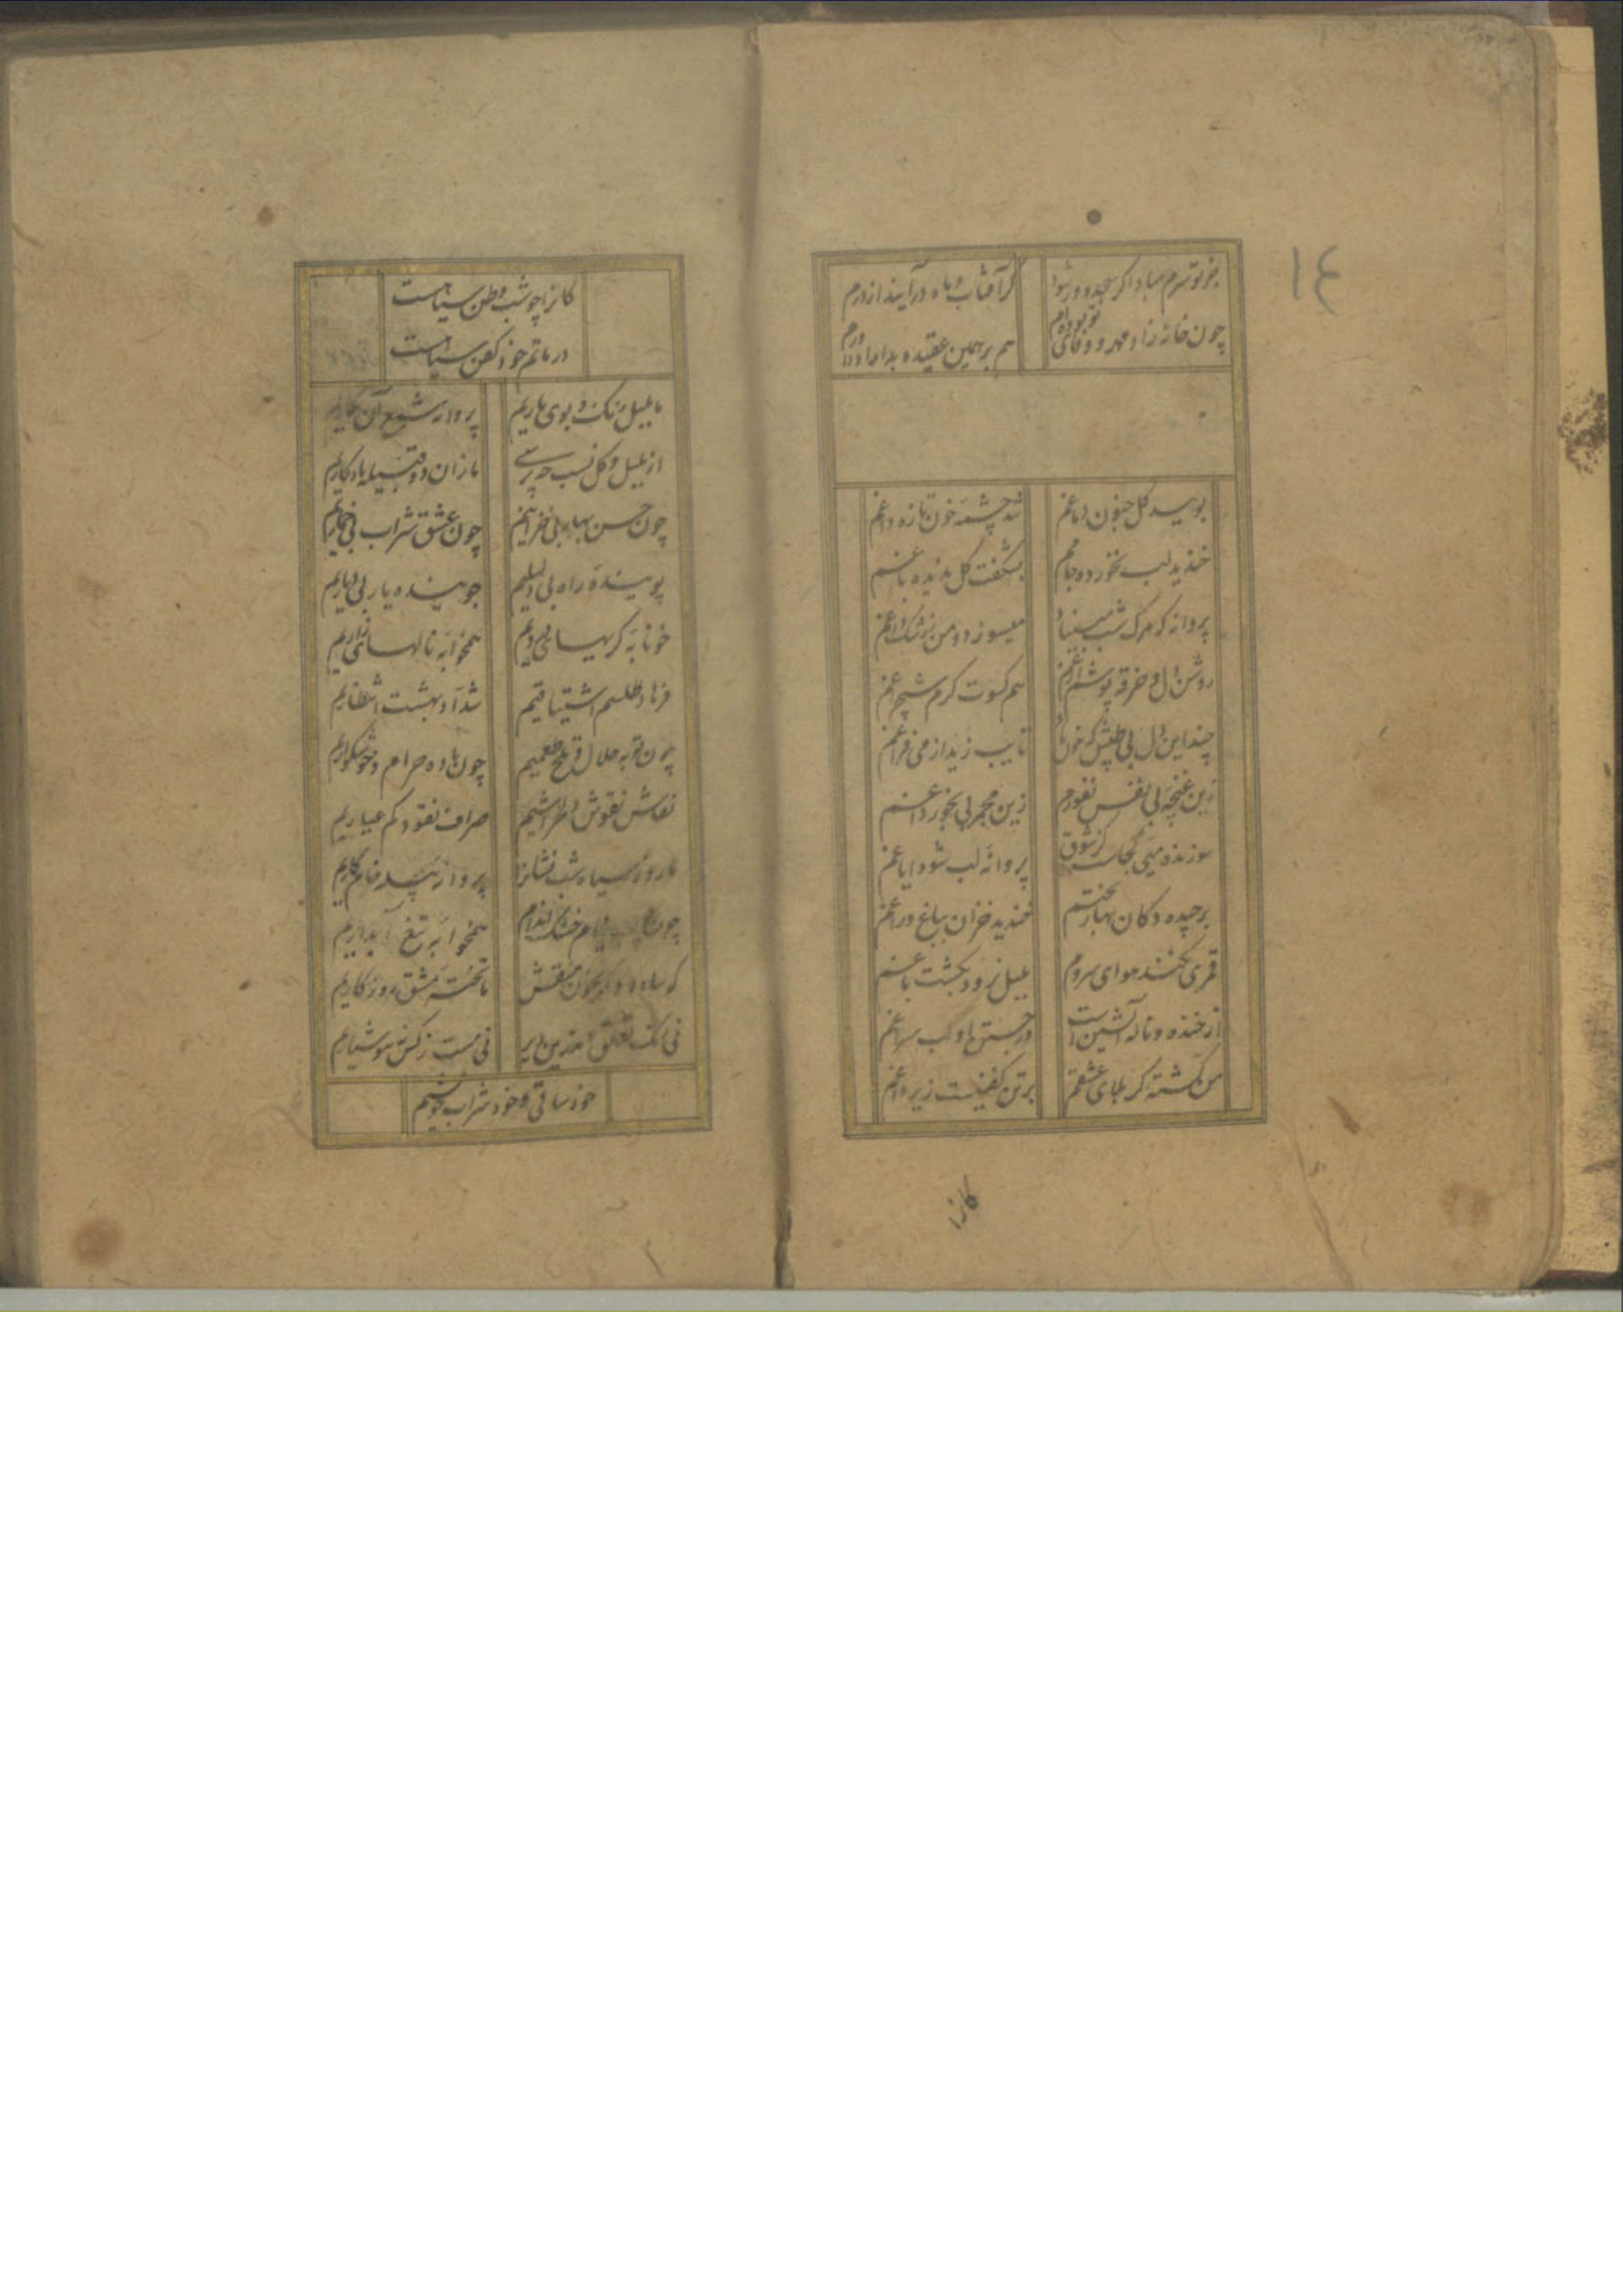 ١٤
بر تو سرم مباد اگر سجده ور شود گر آفتاب و ماه درآیند از درم
چون خانه زاد مهر و وفای تو بوده‌ام هم بر همین عقیده بدار
بویید گل جنون دماغم شد چشمه خون تازه داغم
خندید لب نخورده جامم بشکفت گل ندیده باغم
پروانه که مرک شب میسوزد و من
روشن دل و خرقه پوش هم کسوت کرم شب چراغم
چند این دل بی طپش که خون باد تا یب زید از می فراغم
زین غنچه بی نفس نفورم زین مجمر بی بخور داغم
سوزنده میی کجاست کز شوق پروانه لب شود ایاغم
برچیده دکان بهار بختم خندید خزان بباغ و راغم
قمری نکند هوای سروم بلبل نرود بگشت باغم
از خنده و ناله آتشین است در جستن
من کشته کربلای عشقم بر تن کفنیست زیر داغم
کانرا
کانرا چو شب وطن سیاهست
در ماتم خود کفن سیاهست
ما بلبل رنک و بوی یاریم پروانه شمع آن
از بلبل و کل نسب چه پرسی ما زان دو قبیله یادکاریم
چون حسن بهار بی خزانیم چون عشق شراب بی خماریم
پویندهٔ راه بی دلیلیم جوینده یار بی دیاریم
خونابه کریهای همخوابه نالهای زاریم
فرهاد طلسم اشتیاقیم شداد بهشت انتظاریم
چون توبه حلال و تلخ طعمیم چون باده حرام و خوشکواریم
نقاش نقوش صراف نقود کم عیاریم
ما روز سیاه شب نشانرا پروانه
چون نیام خشک اندام همخوابه تیغ آبداریم
که ساده و که منقش ما تخته مشق روزکاریم
نی مست ز کس نه هوشیاریم
خود ساقی و خود شراب خویشیم